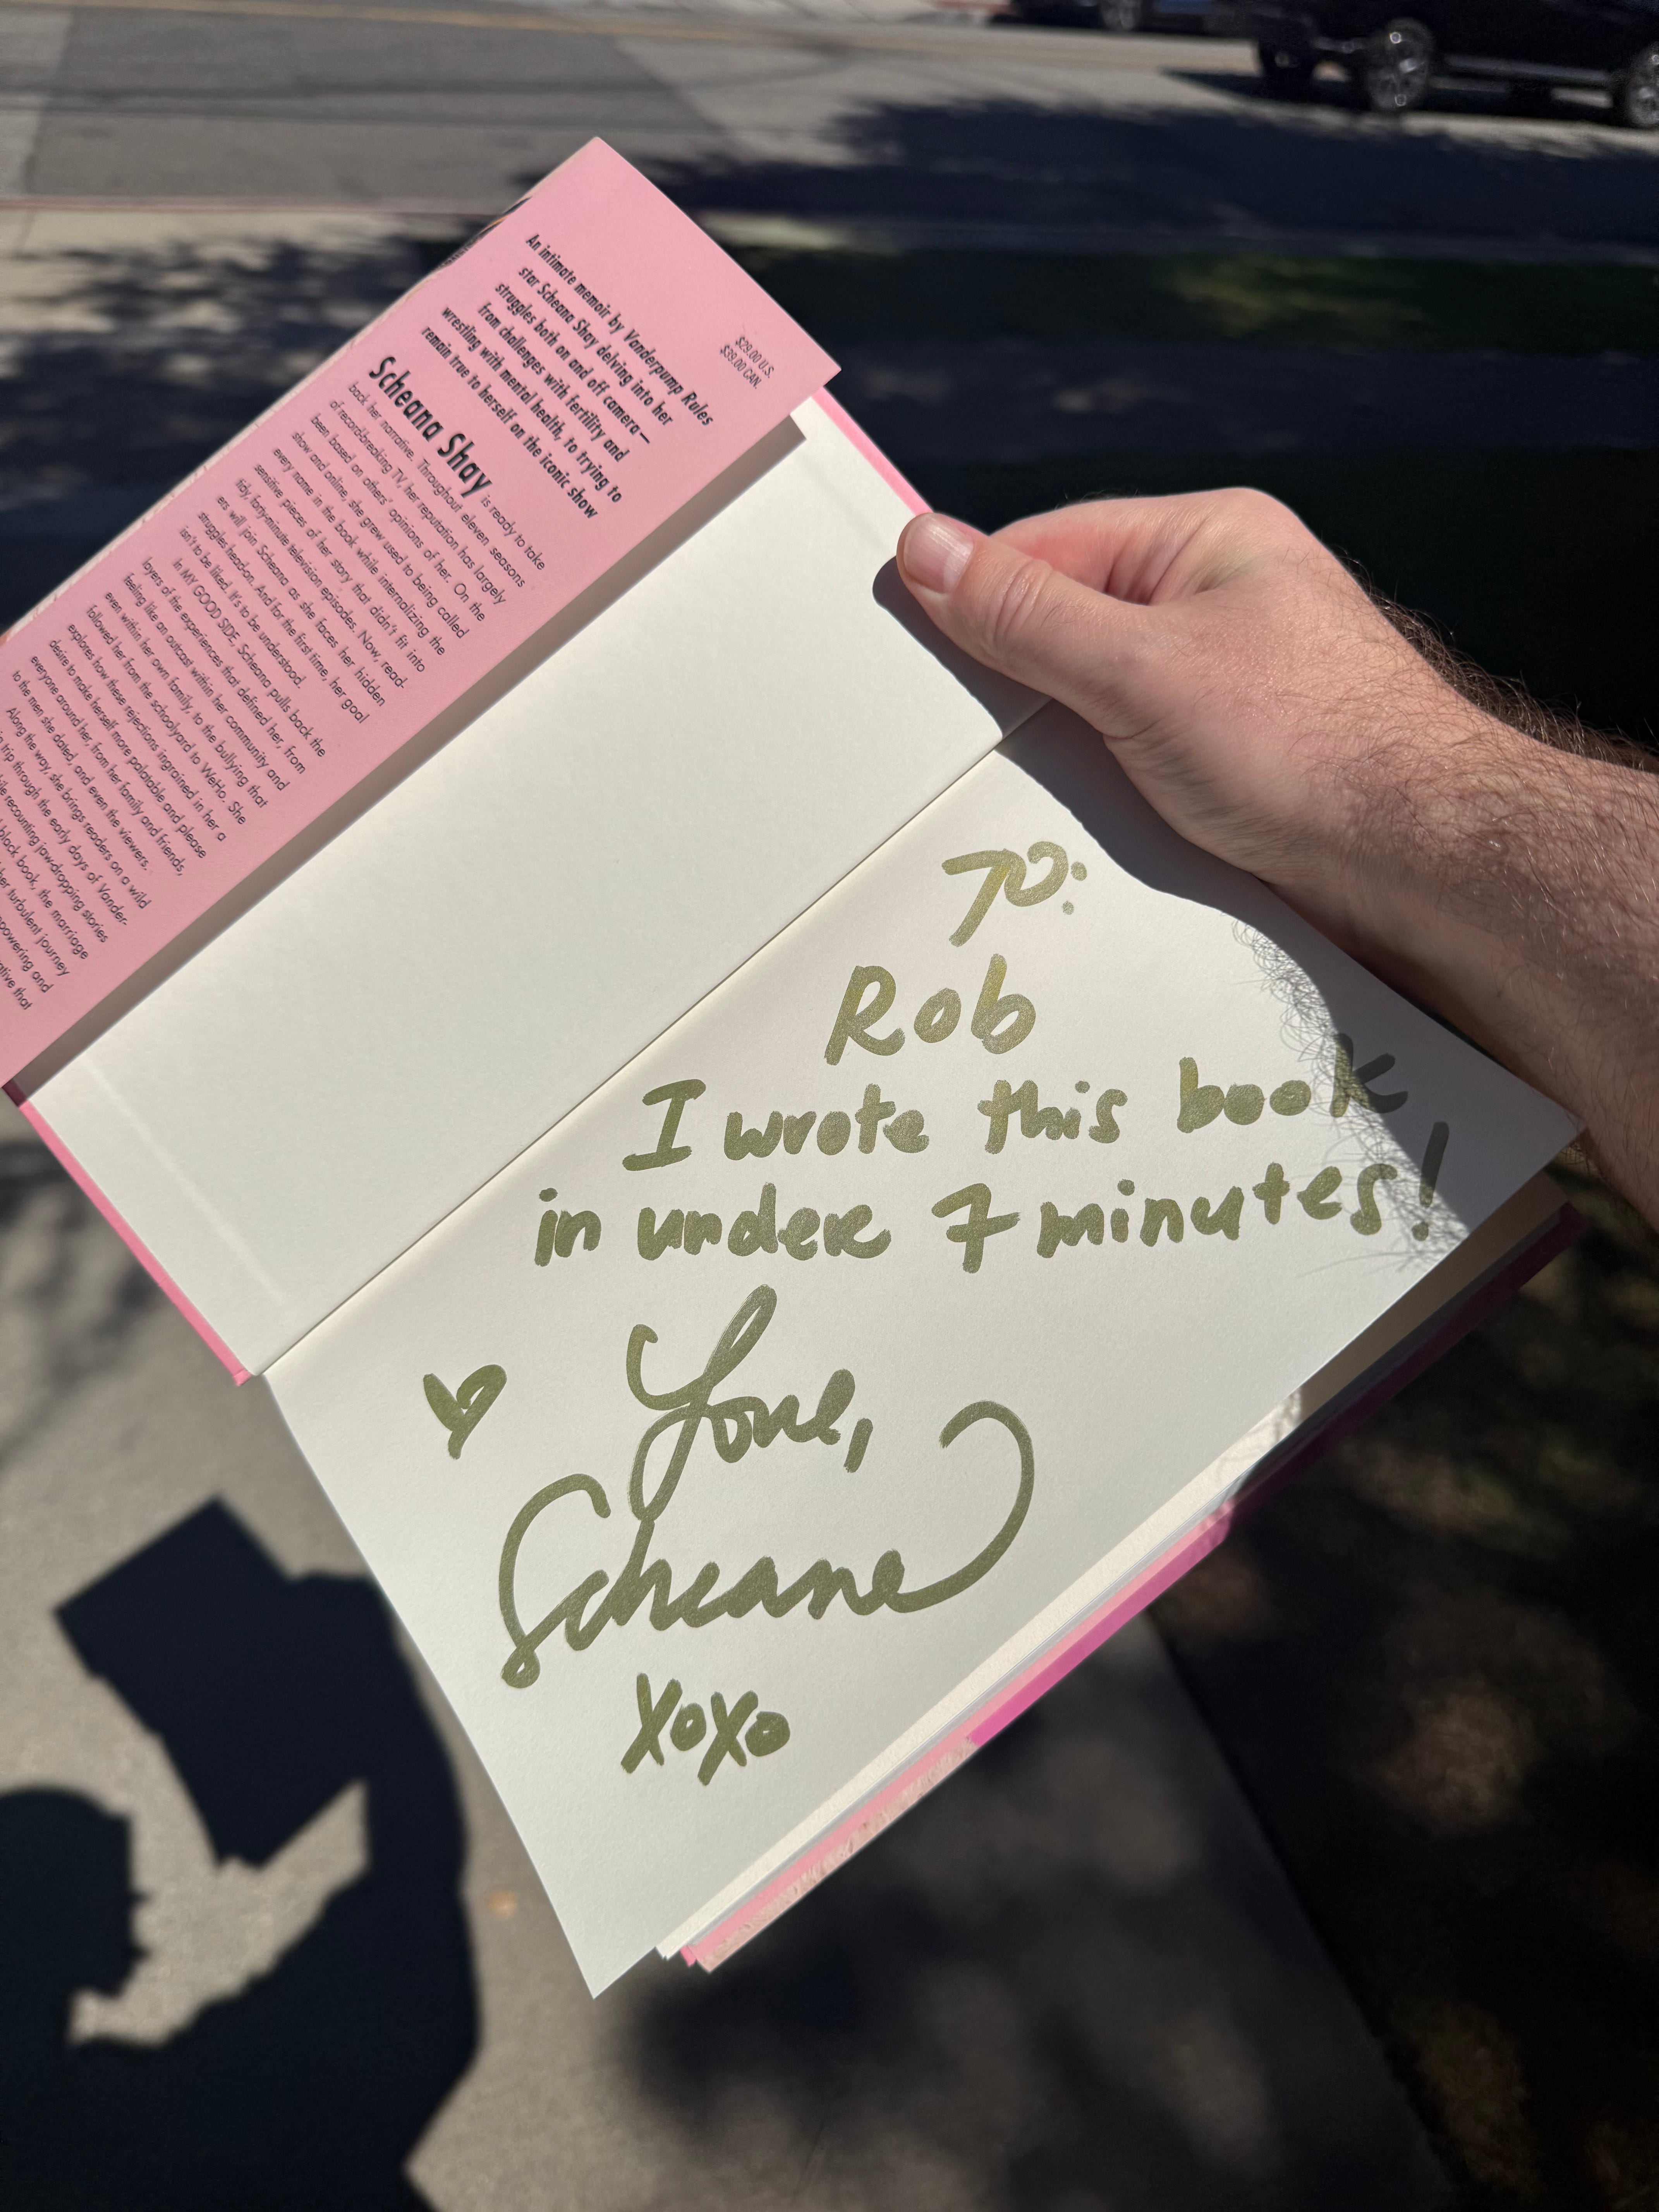 $29.00 U.S.
$39.00 CAN.
An intimate memoir by Vanderpump Rules
star Scheana Shay delving into her
struggles both on and off camera—
from challenges with fertility and
wrestling with mental health, to trying to
remain true to herself on the iconic show
Scheana Shay is ready to take
back her narrative. Throughout eleven seasons
of record-breaking TV, her reputation has largely
been based on others' opinions of her. On the
show and online, she grew used to being called
every name in the book while internalizing the
sensitive pieces of her story that didn't fit into
tidy, forty-minute television episodes. Now, read-
ers will join Scheana as she faces her hidden
struggles head-on. And for the first time, her goal
isn't to be liked. It's to be understood.
In MY GOOD SIDE, Scheana pulls back the
layers of the experiences that defined her, from
feeling like an outcast within her community and
even within her own family, to the bullying that
followed her from the schoolyard to WeHo. She
explores how these rejections ingrained in her a
desire to make herself more palatable and please
everyone around her, from her family and friends,
to the men she dated, and even the viewers.
Along the way, she brings readers on a wild
trip through the early days of Vander-
recounting jaw-dropping stories
black book, the marriage
her turbulent journey
and
that
TO:
Rob
I wrote this book
in under 7 minutes!
Love,
Scheana
XOXO